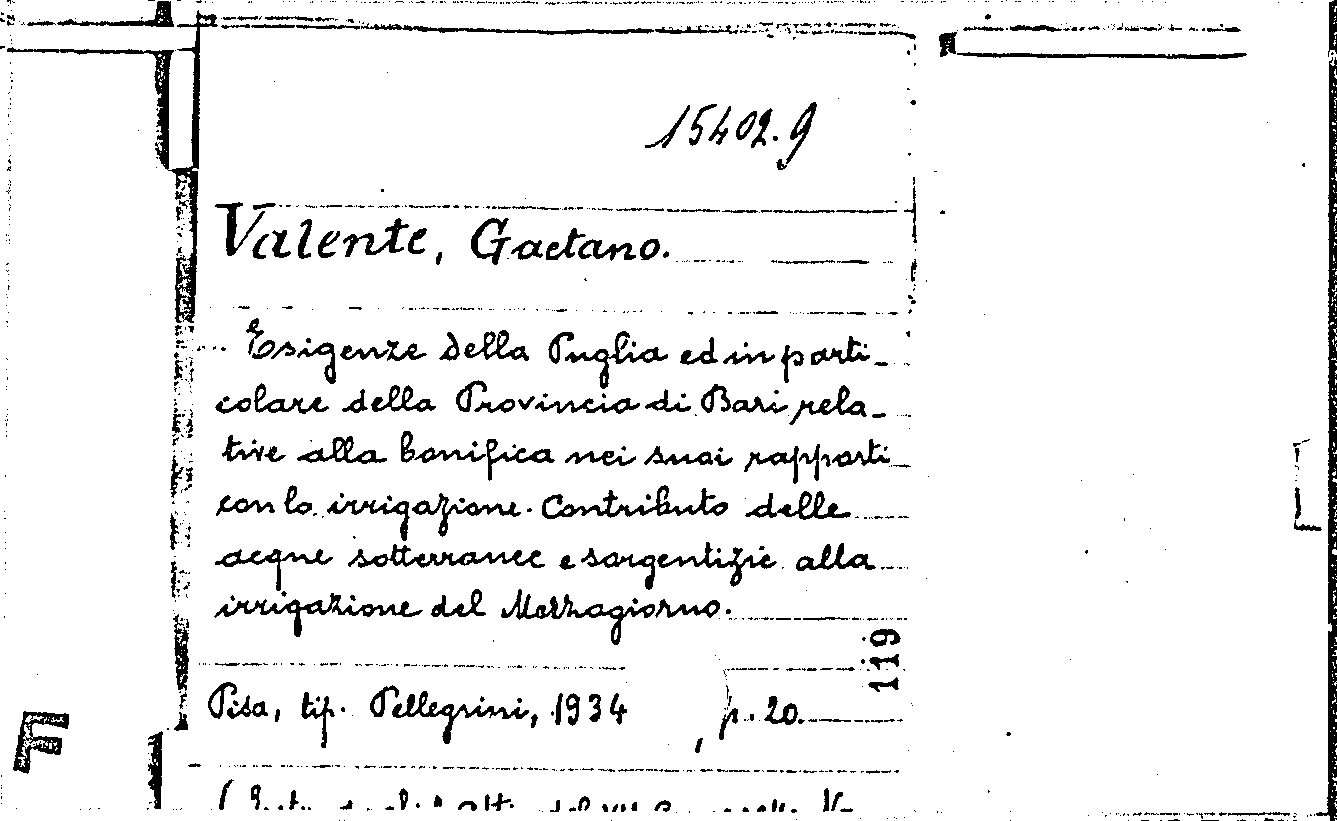 15402.9
Valente, Gaetano.
Esigenze della Puglia ed in parti-
colare della Provincia di Bari rela-
tive alla bonifica nei suoi rapporti
con la irrigazione. Contributo delle
acque sotterranee e sorgentizie alla
irrigazione del Mezzogiorno.
119
Pisa, tip. Pellegrini, 1934, p. 20.
F